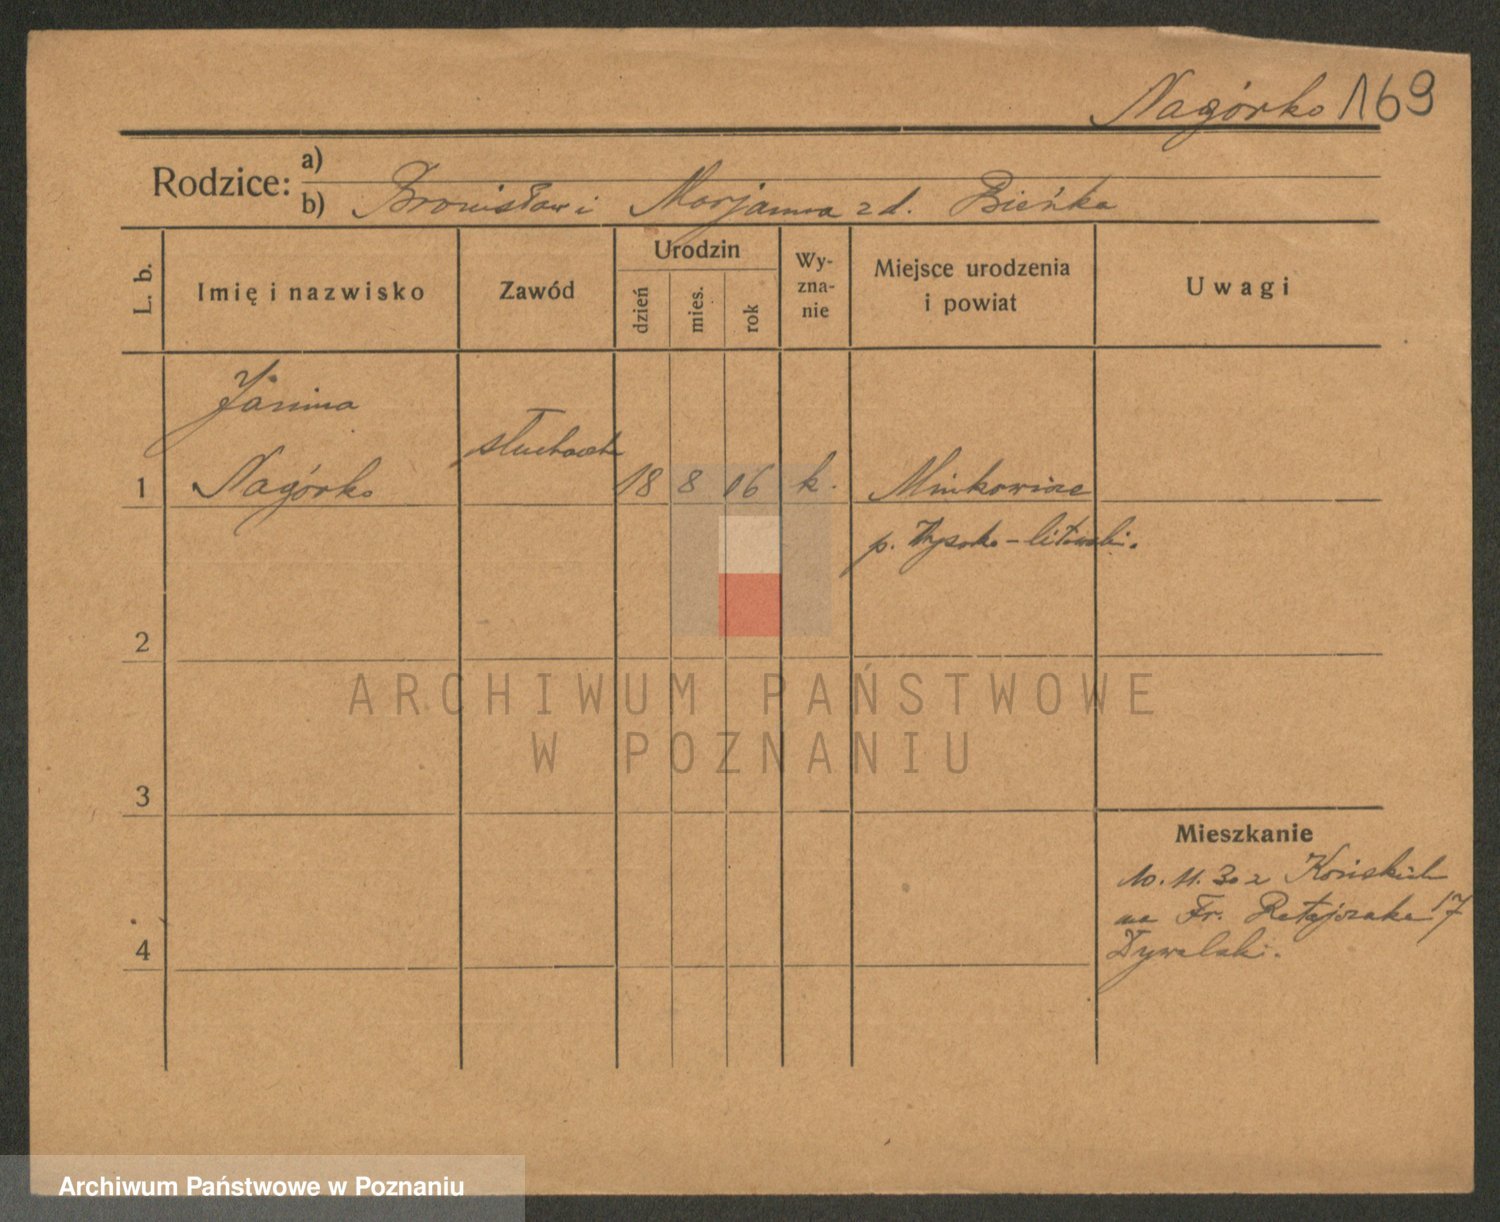 Nagórko 169
Rodzice: a)
b) Bronisław i Marjanna z d. Bieńka
L. b.
Imię i nazwisko
Zawód
Urodzin
dzień
mies.
rok
Wy-
zna-
nie
Miejsce urodzenia
i powiat
Uwagi
Janina
słuchaczka
1 Nagórko 18 8 16 k. Minkowicze
p. Wysoko-litewski.
2
ARCHIWUM PAŃSTWOWE
W POZNANIU
3
Mieszkanie
10.11.30 z Końskich
na Fr. Ratajczaka 17
4
Archiwum Państwowe w Poznaniu